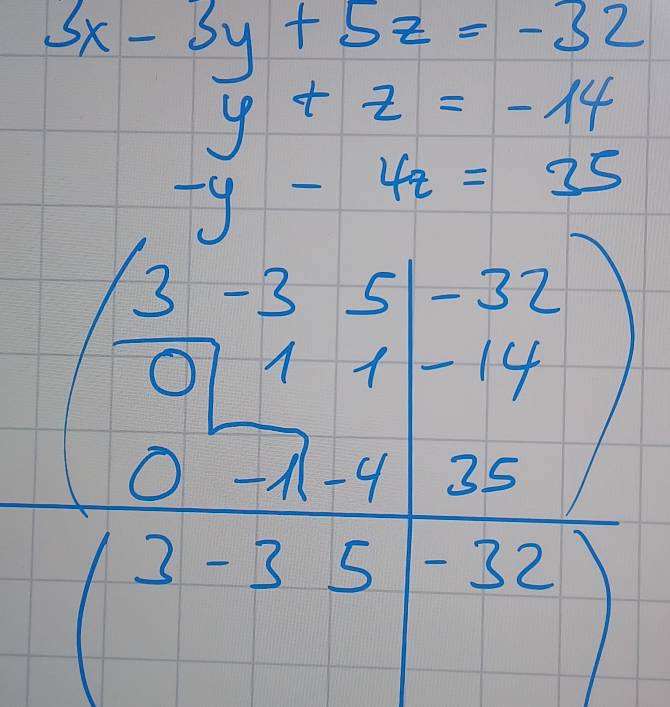 3x - 3y + 5z = -32
y + z = -14
-y - 4z = 35
3 -3 5 | -32
0 1 1 | -14
0 -1 -4 | 35
3 -3 5 | -32